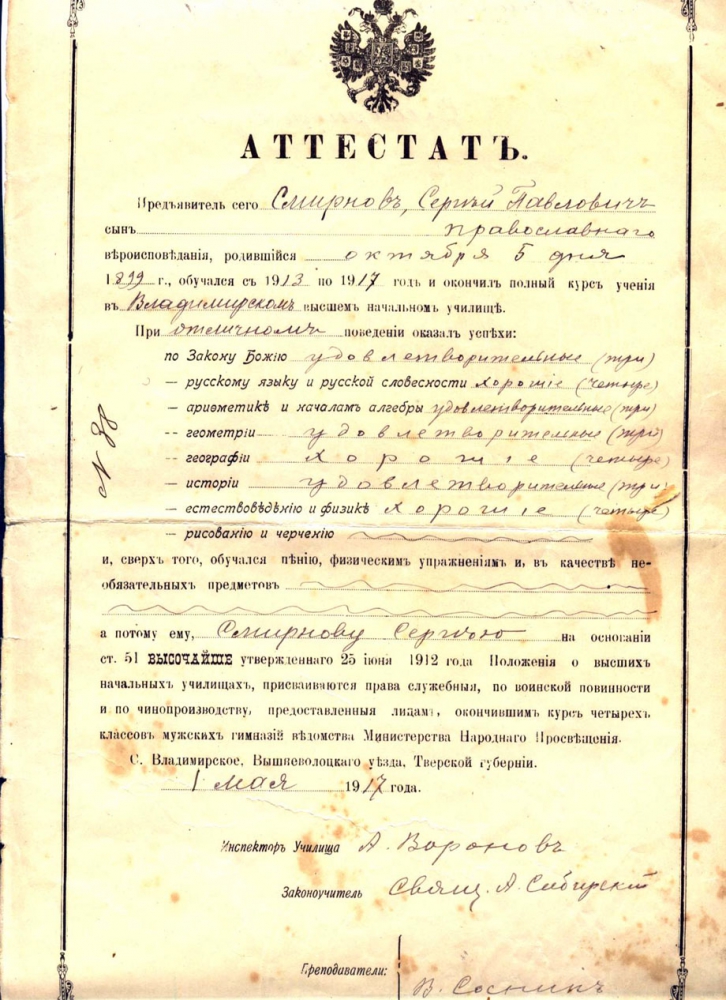 АТТЕСТАТЪ.
Предъявитель сего Смирновъ, Сергѣй Павловичъ
сынъ православнаго
вѣроисповѣданія, родившійся октября 5 дня
1899 г., обучался съ 1913 по 1917 годъ и окончилъ полный курсъ ученія
въ Владимирскомъ высшемъ начальномъ училищѣ.
При отличномъ поведеніи оказалъ успѣхи:
по Закону Божію удовлетворительные (три)
— русскому языку и русской словесности хорошіе (четыре)
— ариѳметикѣ и началамъ алгебры удовлетворительные (три)
— геометріи удовлетворительные (три)
— географіи хорошіе (четыре)
— исторіи удовлетворительные (три)
— естествовѣдѣнію и физикѣ хорошіе (четыре)
— рисованію и черченію
и, сверхъ того, обучался пѣнію, физическимъ упражненіямъ и, въ качествѣ не-
обязательныхъ предметовъ
а потому ему, Смирнову Сергѣю на основаніи
ст. 51 ВЫСОЧАЙШЕ утвержденнаго 25 іюня 1912 года Положенія о высшихъ
начальныхъ училищахъ, присваиваются права служебныя, по воинской повинности
и по чинопроизводству, предоставленныя лицамъ, окончившимъ курсъ четырехъ
классовъ мужскихъ гимназій вѣдомства Министерства Народнаго Просвѣщенія.
С. Владимирское, Вышневолоцкаго уѣзда, Тверской губерніи.
1 мая 1917 года.
Инспекторъ Училища А. Вороновъ
Законоучитель Свящ. А. Сибирскій
Преподаватели:
В. Соснинъ